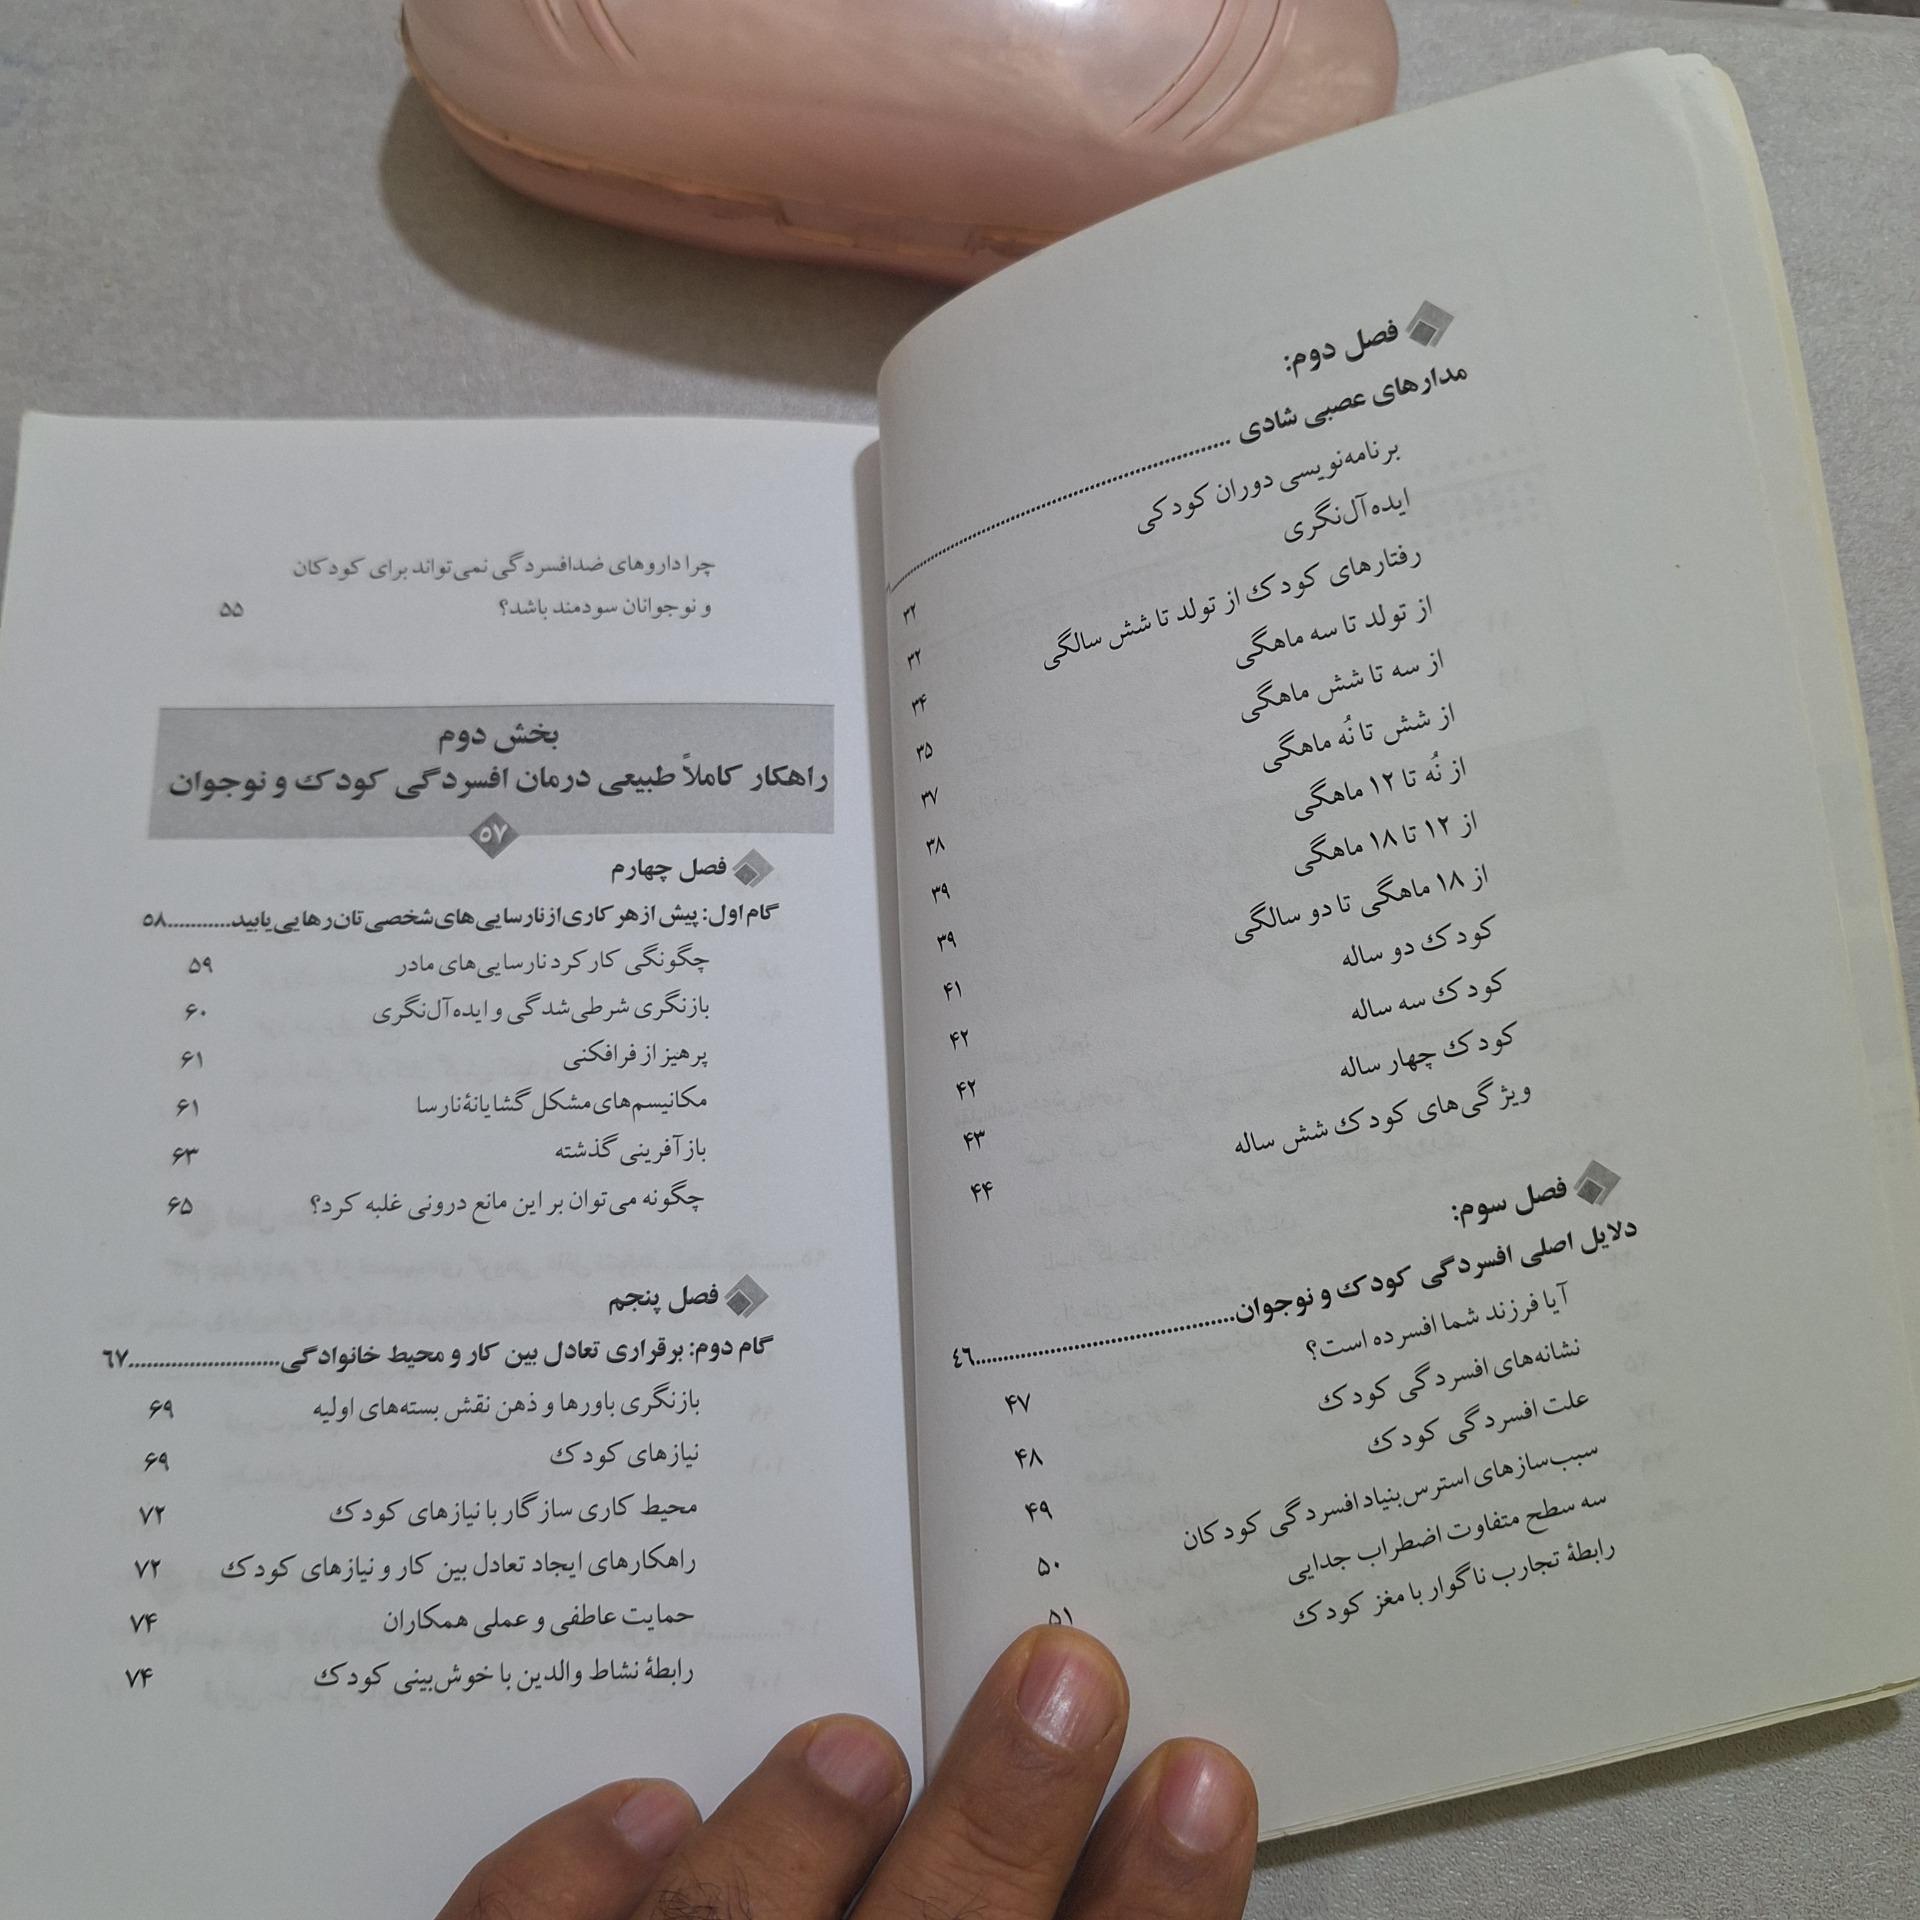 فصل دوم:
مدارهای عصبی شادی
برنامه‌نویسی دوران کودکی ۳۲
ایده‌آل‌نگری ۳۲
رفتارهای کودک از تولد تا شش سالگی ۳۴
از تولد تا سه ماهگی ۳۵
از سه تا شش ماهگی ۳۷
از شش تا نُه ماهگی ۳۸
از نُه تا ۱۲ ماهگی ۳۹
از ۱۲ تا ۱۸ ماهگی ۳۹
از ۱۸ ماهگی تا دو سالگی ۴۱
کودک دو ساله ۴۲
کودک سه ساله ۴۲
کودک چهار ساله ۴۳
ویژگی‌های کودک شش ساله ۴۴
فصل سوم:
دلایل اصلی افسردگی کودک و نوجوان..............................٤٦
آیا فرزند شما افسرده است؟ ۴۷
نشانه‌های افسردگی کودک ۴۸
علت افسردگی کودک ۴۹
سبب‌سازهای استرس‌بنیاد افسردگی کودکان ۵۰
سه سطح متفاوت اضطراب جدایی ۵۱
رابطهٔ تجارب ناگوار با مغز کودک
چرا داروهای ضدافسردگی نمی‌تواند برای کودکان
و نوجوانان سودمند باشد؟ ۵۵
بخش دوم
راهکار کاملاً طبیعی درمان افسردگی کودک و نوجوان
۵۷
فصل چهارم
گام اول: پیش از هر کاری از نارسایی‌های شخصی تان رهایی یابید...........۵۸
چگونگی کارکرد نارسایی‌های مادر ۵۹
بازنگری شرطی‌شدگی و ایده‌آل‌نگری ۶۰
پرهیز از فرافکنی ۶۱
مکانیسم‌های مشکل‌گشایانهٔ نارسا ۶۱
بازآفرینی گذشته ۶۳
چگونه می‌توان بر این مانع درونی غلبه کرد؟ ۶۵
فصل پنجم
گام دوم: برقراری تعادل بین کار و محیط خانوادگی.........................٦٧
بازنگری باورها و ذهن نقش بسته‌های اولیه ۶۹
نیازهای کودک ۶۹
محیط کاری سازگار با نیازهای کودک ۷۲
راهکارهای ایجاد تعادل بین کار و نیازهای کودک ۷۲
حمایت عاطفی و عملی همکاران ۷۴
رابطهٔ نشاط والدین با خوش‌بینی کودک ۷۴